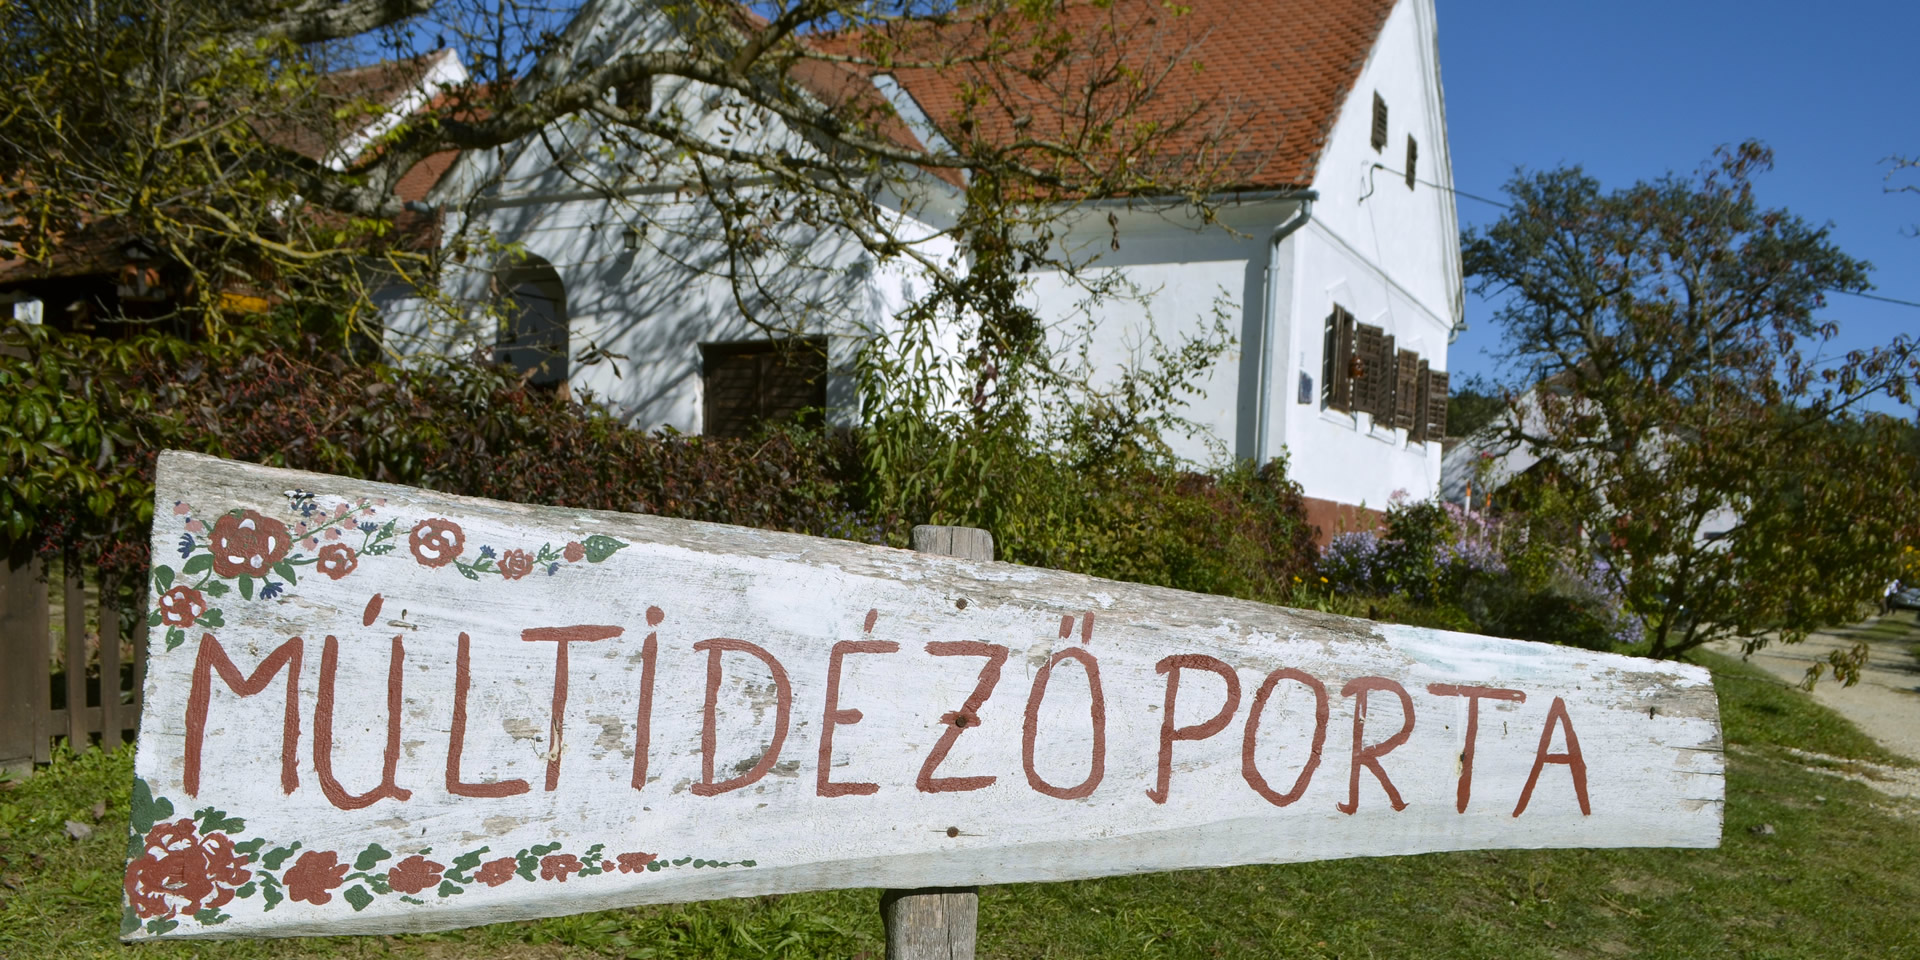 MÚLTIDÉZŐ PORTA